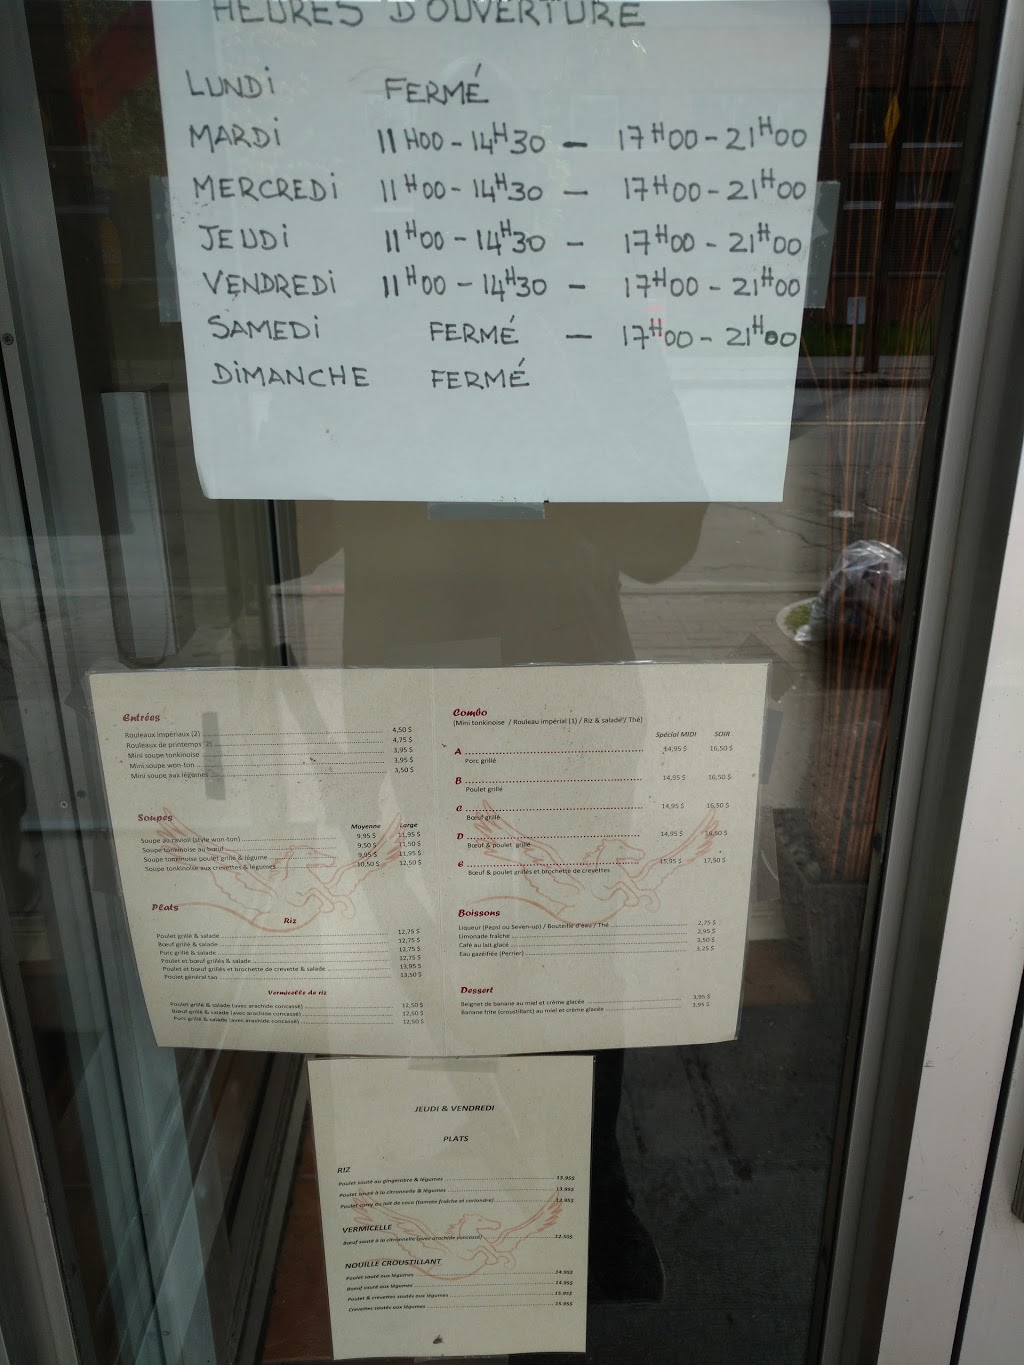 HEURES D'OUVERTURE
LUNDI FERMÉ
MARDI 11H00 - 14H30 - 17H00 - 21H00
MERCREDI 11H00 - 14H30 - 17H00 - 21H00
JEUDI 11H00 - 14H30 - 17H00 - 21H00
VENDREDI 11H00 - 14H30 - 17H00 - 21H00
SAMEDI FERMÉ - 17H00 - 21H00
DIMANCHE FERMÉ
Entrées
Rouleaux impériaux (2) 4,50 $
Rouleaux de printemps (2) 4,75 $
Mini soupe tonkinoise 3,95 $
Mini soupe won-ton 3,95 $
Mini soupe aux légumes 3,50 $
Soupes
Moyenne Large
Soupe au ravioli (style won-ton) 9,95 $ 11,95 $
Soupe tonkinoise au bœuf 9,50 $ 11,50 $
Soupe tonkinoise poulet grillé & légume 9,95 $ 11,95 $
Soupe tonkinoise aux crevettes & légumes 10,50 $ 12,50 $
Plats
Riz
Poulet grillé & salade 12,75 $
Bœuf grillé & salade 12,75 $
Porc grillé & salade 12,75 $
Poulet et bœuf grillés & salade 12,75 $
Poulet et bœuf grillés et brochette de crevette & salade 13,95 $
Poulet général tao 13,50 $
Vermicelle de riz
Poulet grillé & salade (avec arachide concassé) 12,50 $
Bœuf grillé & salade (avec arachide concassé) 12,50 $
Porc grillé & salade (avec arachide concassé) 12,50 $
Combo
(Mini tonkinoise / Rouleau impérial (1) / Riz & salade / Thé)
Spécial MIDI SOIR
A 14,95 $ 16,50 $
Porc grillé
B 14,95 $ 16,50 $
Poulet grillé
C 14,95 $ 16,50 $
Bœuf grillé
D 14,95 $ 16,50 $
Bœuf & poulet grillé
E 15,95 $ 17,50 $
Bœuf & poulet grillés et brochette de crevettes
Boissons
Liqueur (Pepsi ou Seven-up) / Bouteille d'eau / Thé 2,75 $
Limonade fraîche 2,95 $
Café au lait glacé 3,50 $
Eau gazéifiée (Perrier) 3,25 $
Dessert
Beignet de banane au miel et crème glacée 3,95 $
Banane frite (croustillant) au miel et crème glacée 3,95 $
JEUDI & VENDREDI
PLATS
RIZ
Poulet sauté au gingembre & légumes 13.95$
Poulet sauté à la citronnelle & légumes 13.95$
Poulet curry au lait de coco (tomate fraîche et coriandre) 13.95$
VERMICELLE
Bœuf sauté à la citronnelle (avec arachide concassé) 12.50$
NOUILLE CROUSTILLANT
Poulet sauté aux légumes 14.95$
Bœuf sauté aux légumes 14.95$
Poulet & crevettes sautés aux légumes 15.95$
Crevettes sautés aux légumes 15.95$